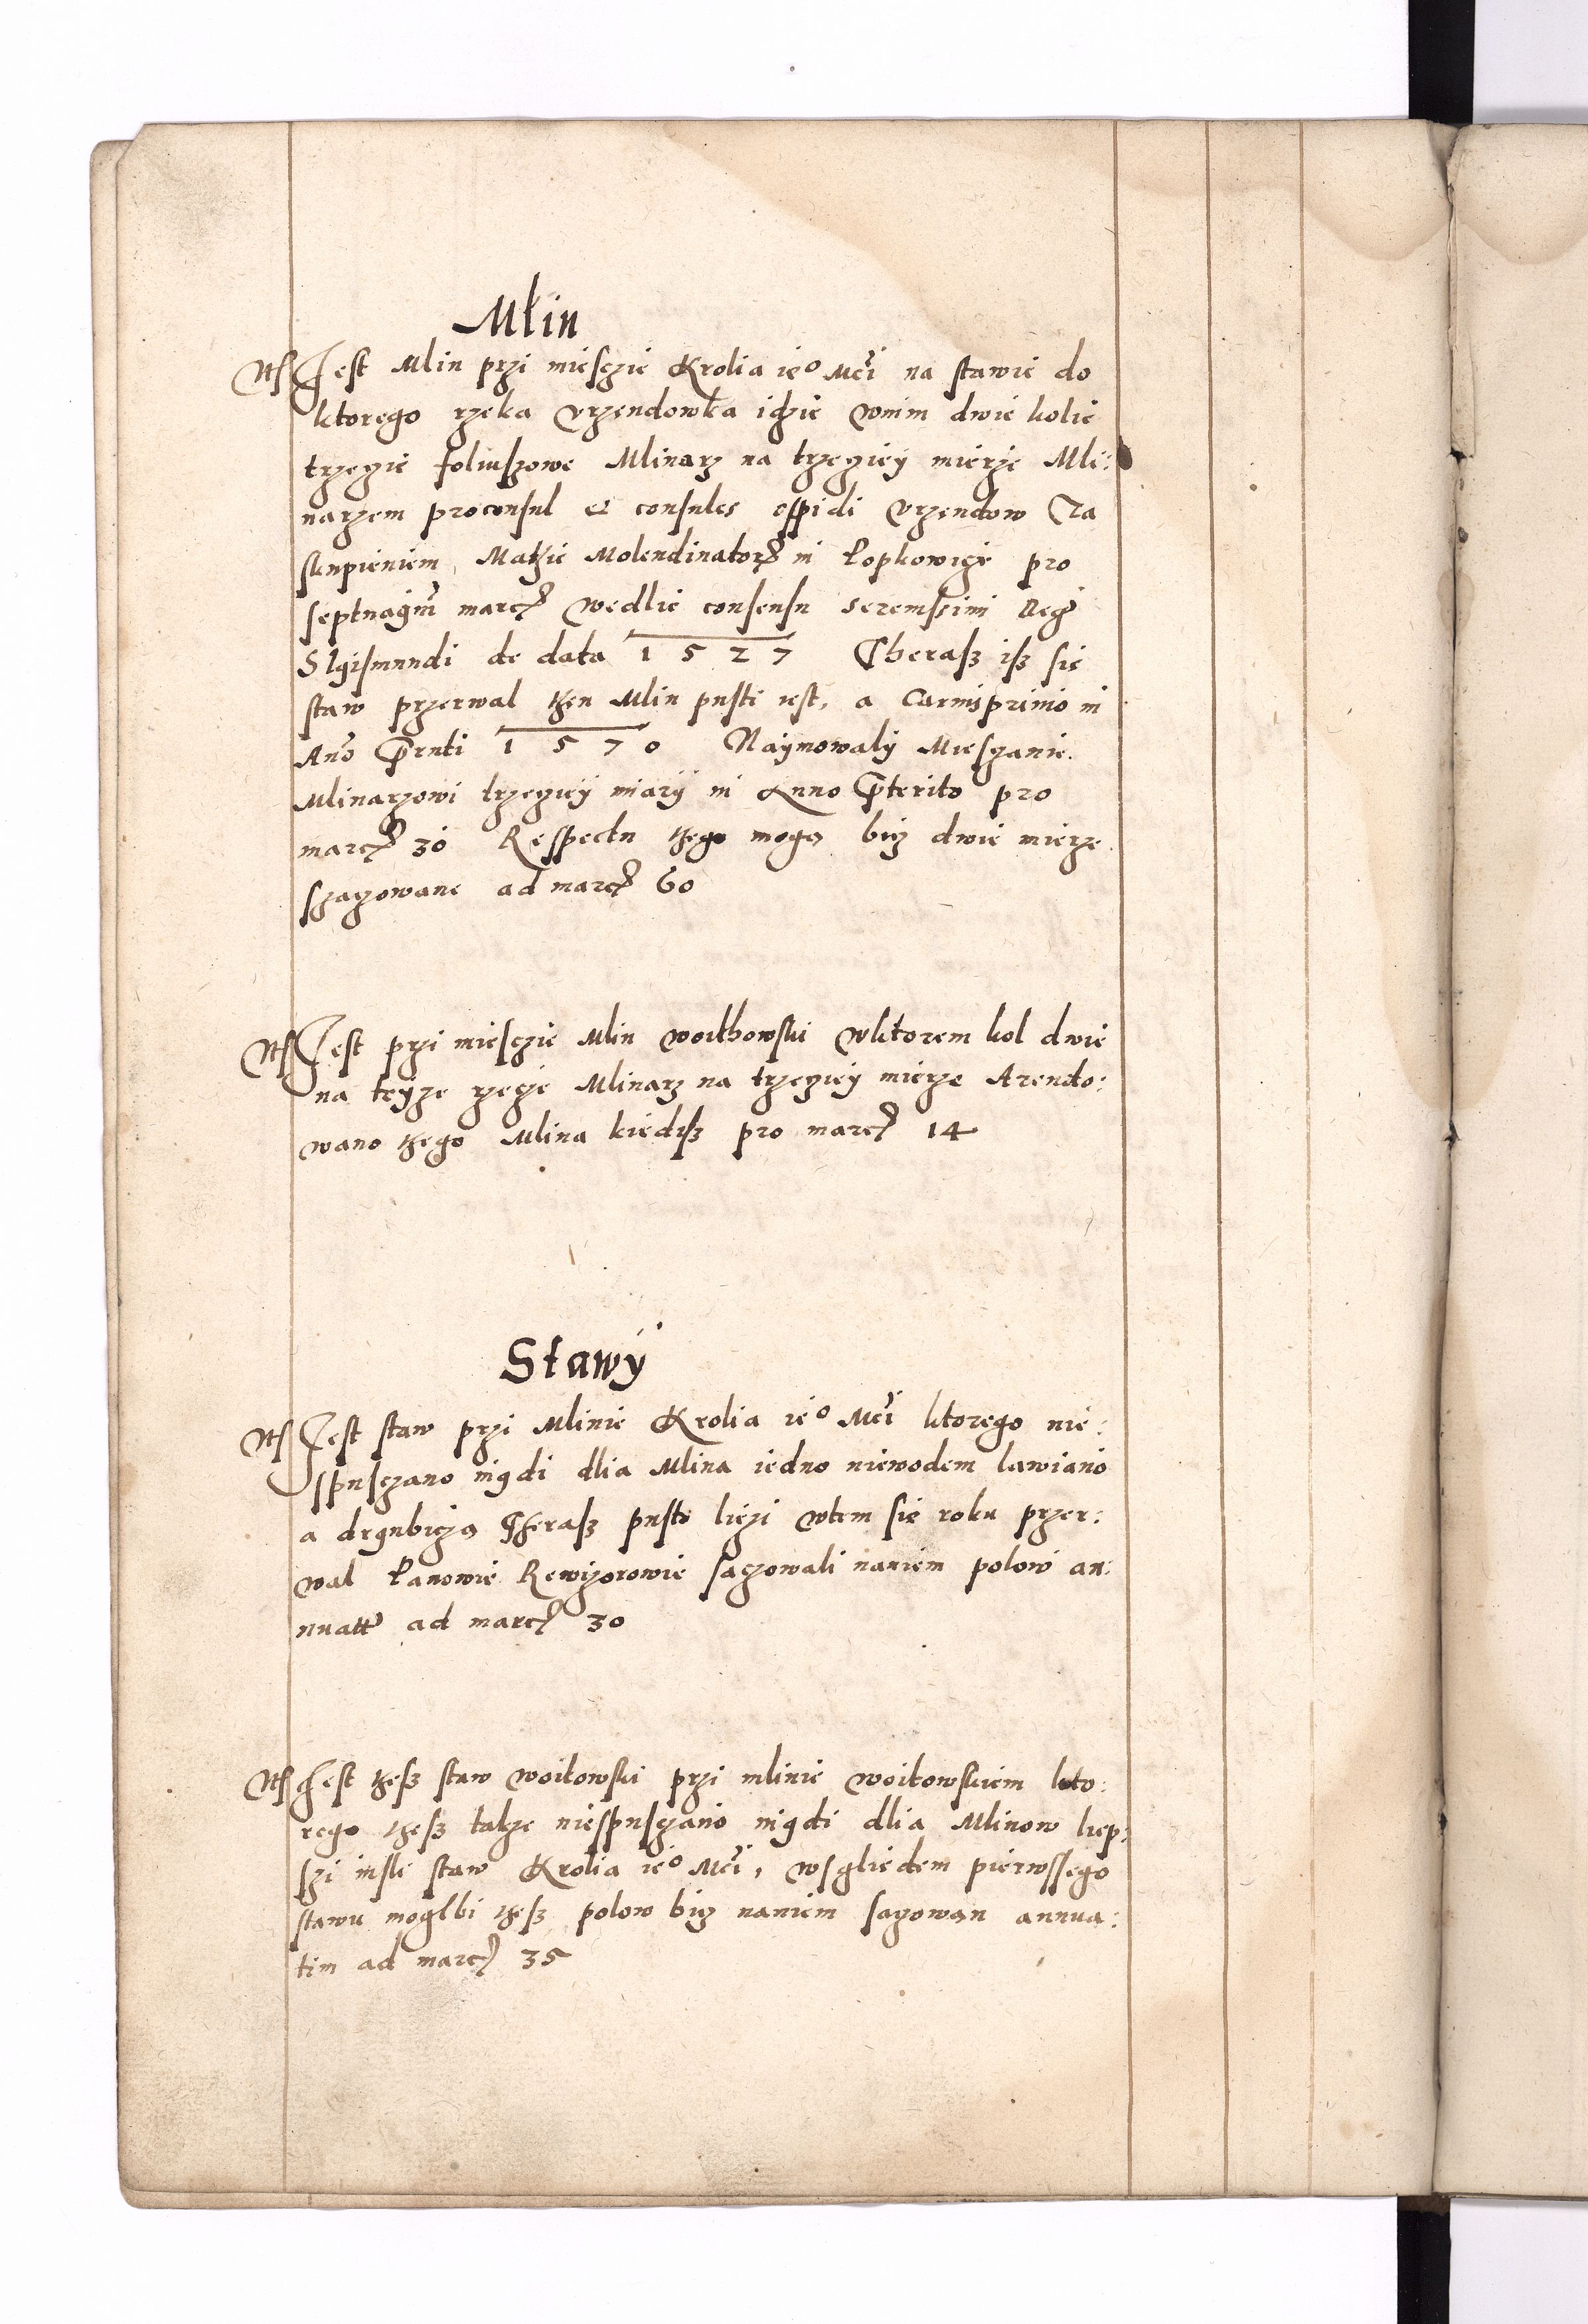 Młin
Jest Mlin przi miesczie Krolia ieo Mći na stawie do
ktorego rzeka Vrzendowka idzie wnim dwie kolie
trzeczie foliuszowe Mlinarz na trzecziey mierze Mli:
narzem proconsul et consules oppidi Vrzendow Za
skupieniem, Molendinator in Łopkowicze pro
marc wedlie consensu serenissimi Reg
Sigismundi de data 1527 Cherasz isz sie
staw przerwal then Mlin pusti iest, a Carnisprimo in
Ano Prnti 1570 Naymowaly Miesczanie.
Mlinarzowi trzecziey miary in Anno Pterito pro
marc 30 Respectu thego mogą bicz dwie mierze
szaczowane ad marc 60
Jest przi miesczie Mlin woithowski wktorem kol dwie
na teyze rzecze Mlinarz na trzecziey mierze Arendo:
wano thego Mlina kiedisz pro marc 14
Stawy
Jest staw przi Mlinie Krolia ieo Mći ktorego nie:
spusczano nigdi dlia Mlina iedno niewodem lawiano
a drgubiczą Therasz pusto liezi wtem sie roku przer:
wal Panowie Rewizorowie saczowali naniem polow an:
nuatt ad marc 30
Jest thesz staw woitowski przi mlinie woitowskiem kto:
rego thesz takze niespusczano nigdi dlia Mlinow liep:
szi insli staw Krolia ieo Mći, wsgliedem pierwssego
stawu moglbi thesz polow bicz naniem saczowan annua:
tim ad marc 35